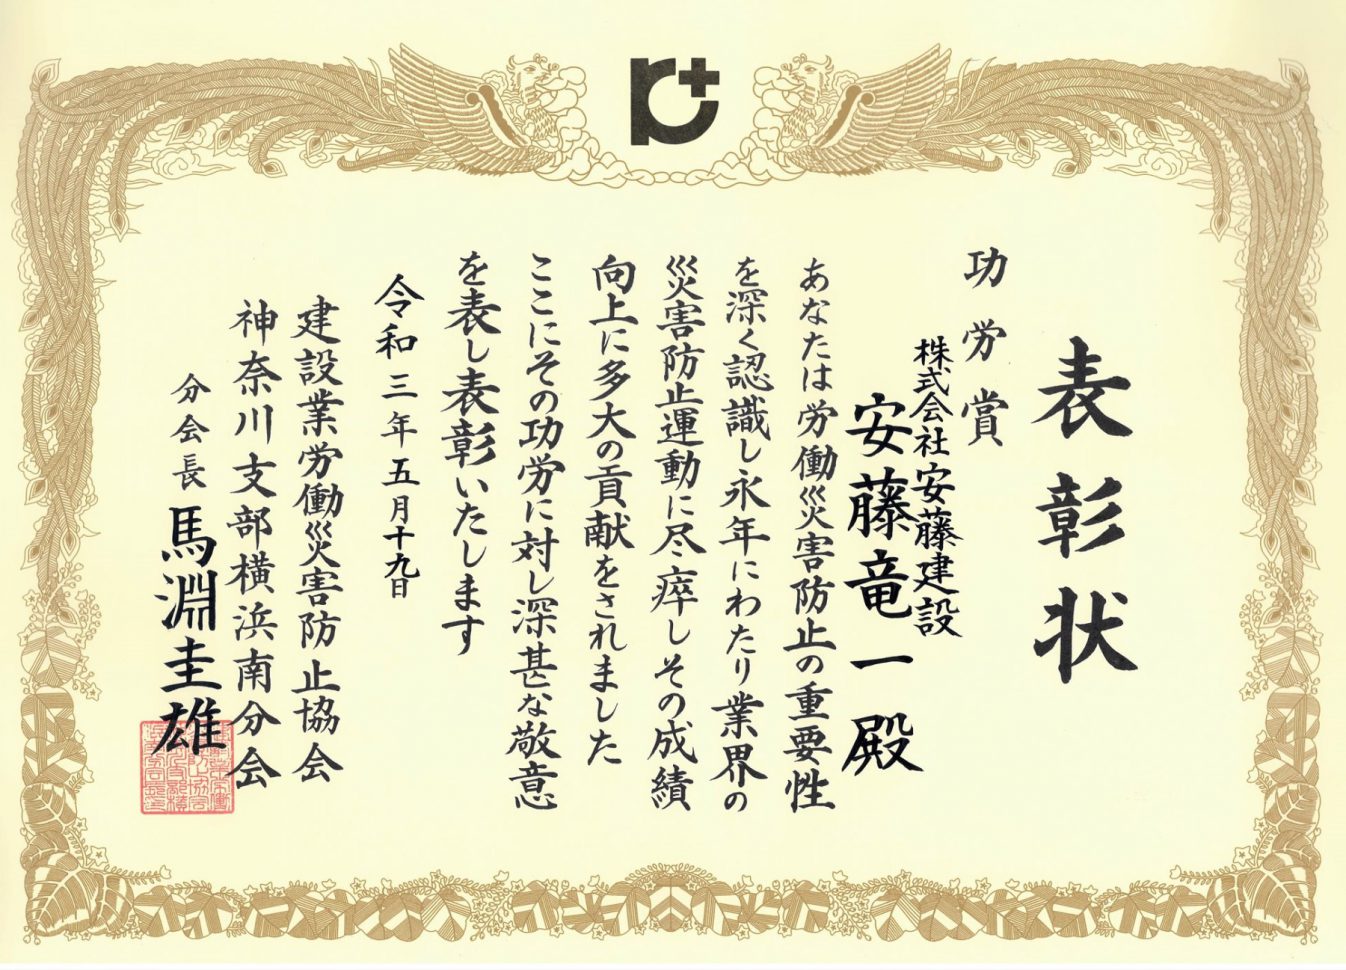 表彰状
功労賞
株式会社安藤建設
安藤竜一殿
あなたは労働災害防止の重要性
を深く認識し永年にわたり業界の
災害防止運動に尽瘁しその成績
向上に多大の貢献をされました
ここにその功労に対し深甚な敬意
を表し表彰いたします
令和三年五月十九日
建設業労働災害防止協会
神奈川支部横浜南分会
分会長 馬淵圭雄